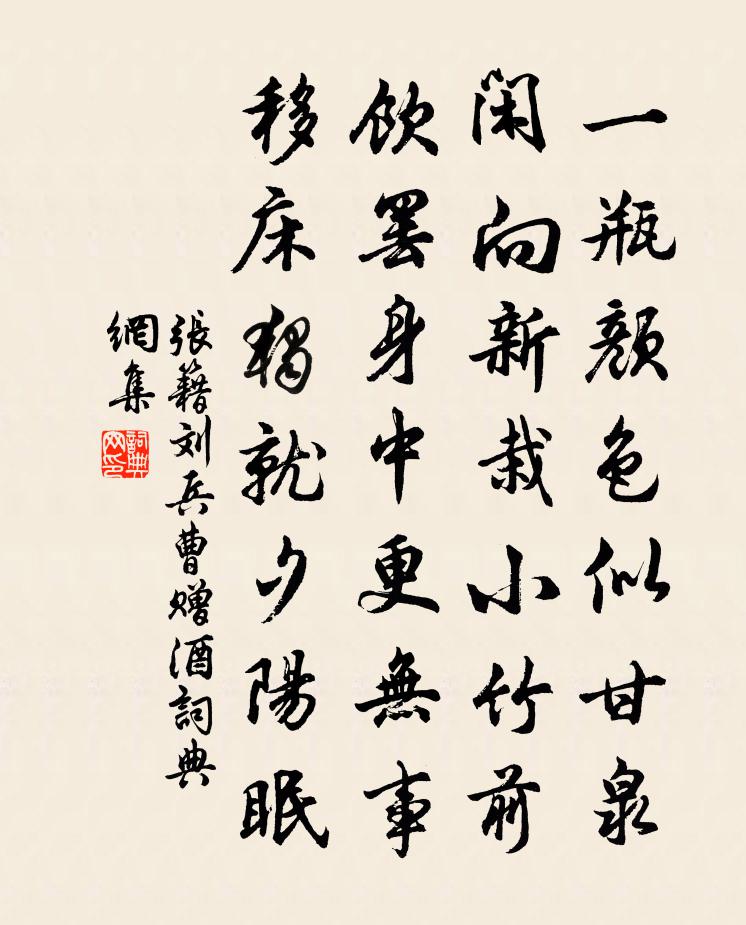 一瓶颜色似甘泉
闲向新栽小竹前
飲罢身中更無事
移床獨就夕陽眠
張籍刘兵曹赠酒詞典
網集
詞典
网印